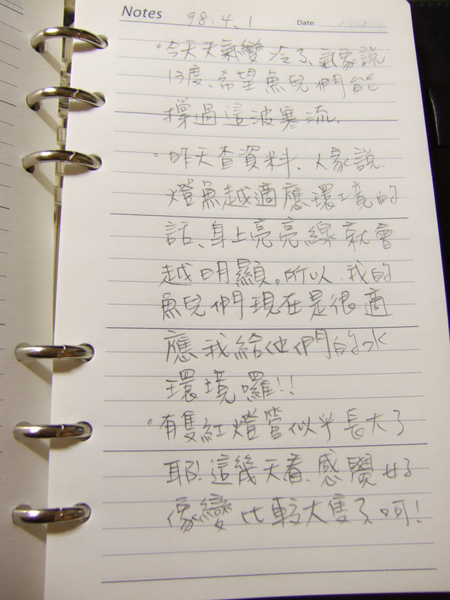 Notes 98.4.1 Date:
。今天天氣變冷了、氣象說
13度、希望魚兒們能
撐過這波寒流、
。昨天查資料、人家說、
燈魚越適應環境的
話、身上亮亮線就會
越明顯。所以、我的
魚兒們現在是很適
應我給他們的水
環境囉!!
。有隻紅燈管似乎長大了
耶!這幾天看、感覺好
像變比較大隻了呵!